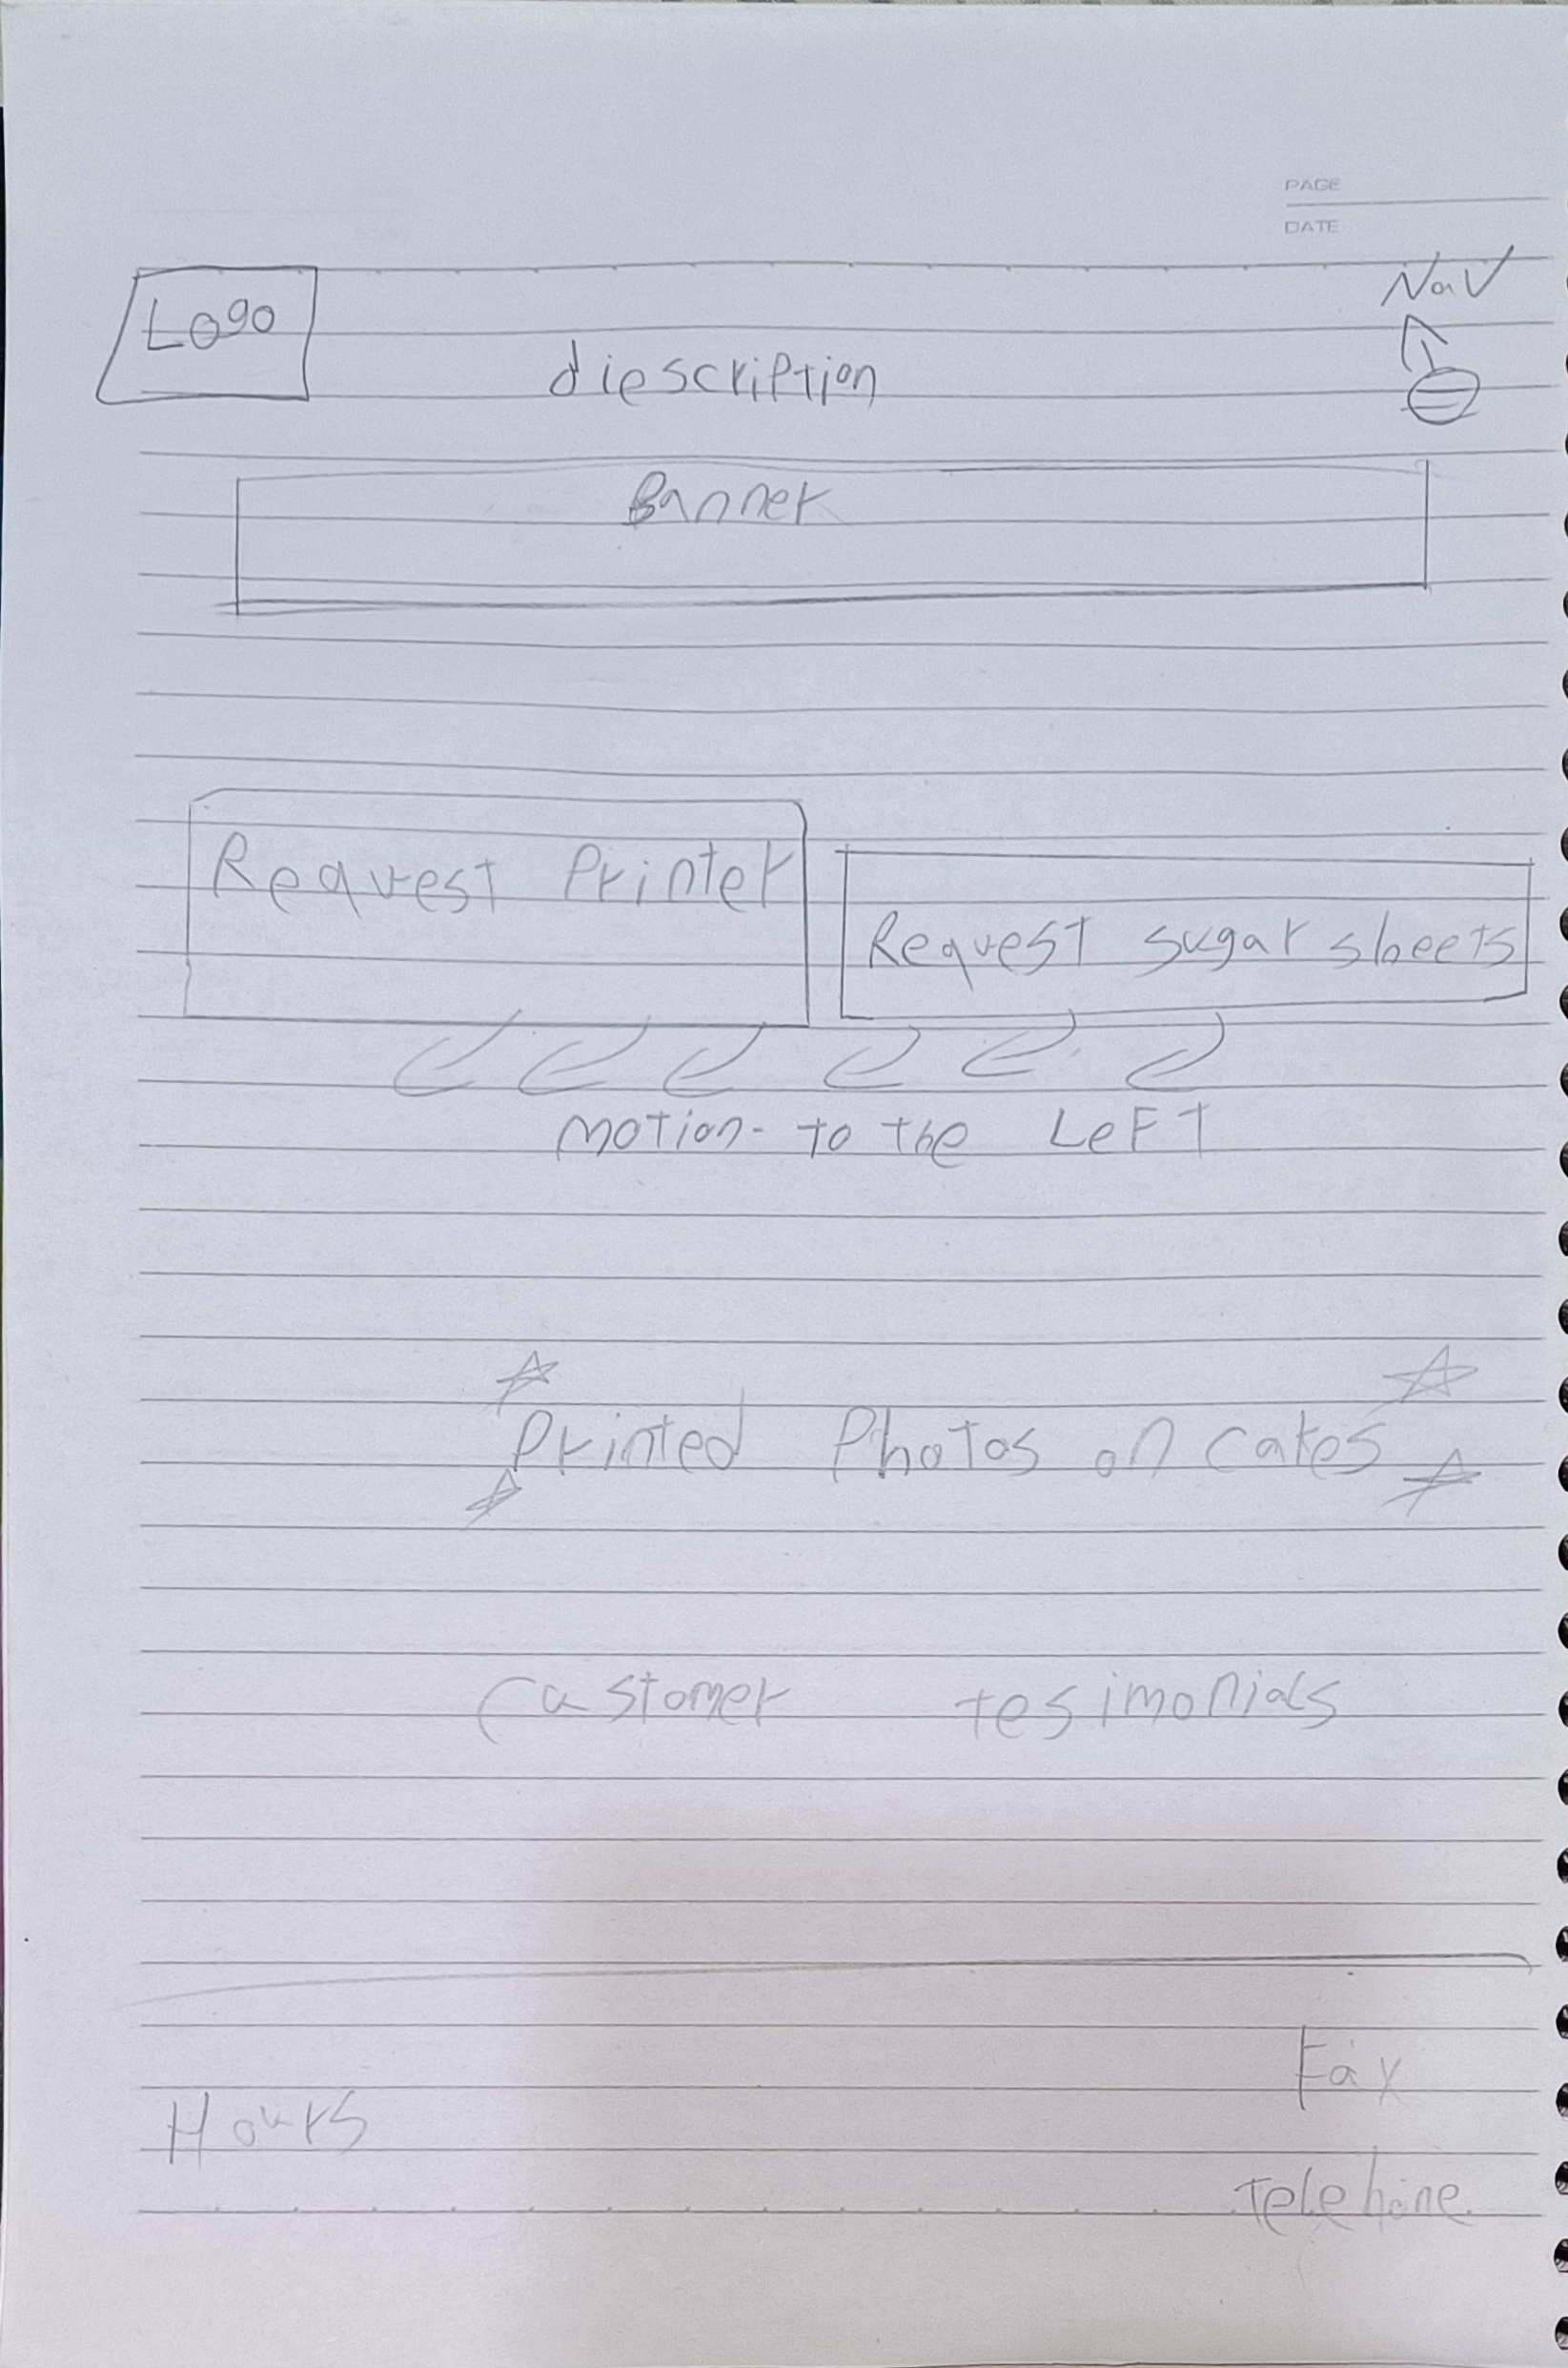 PAGE
DATE
Logo
Nav
diescription
Banner
Request Printer
Request sugar sheets
motion- to the LeFT
Printed Photos on cakes
Customer tesimonials
Fax
Hours
telehone